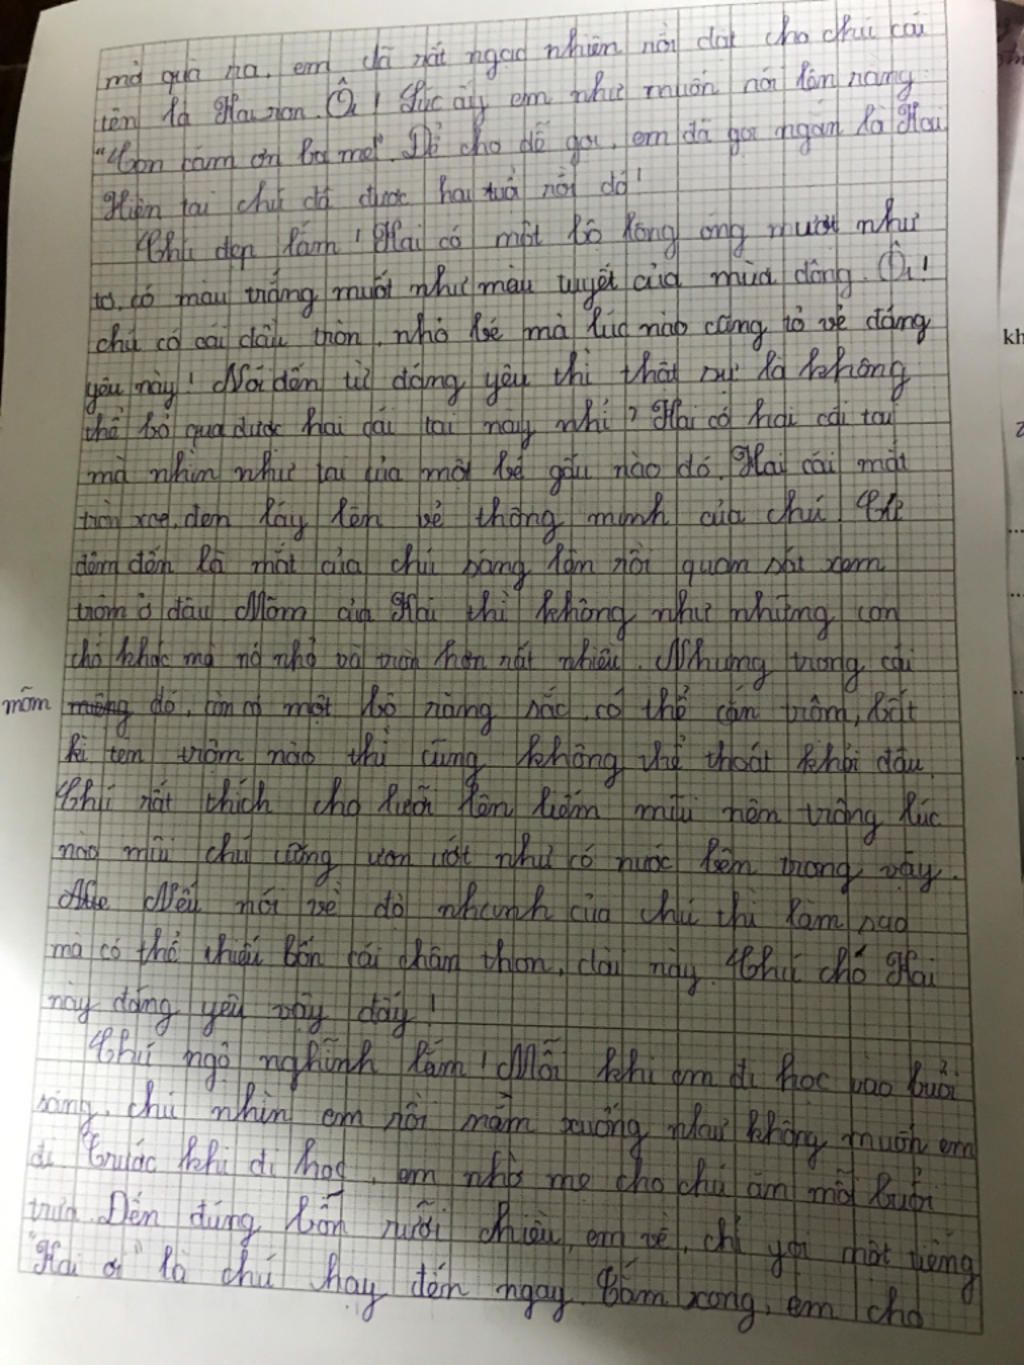 mở quà ra, em đã rất ngạc nhiên rồi đặt cho chú cái
tên là Hairon. Ôi! Lúc ấy em như muốn nói lên rằng
"Con cảm ơn ba mẹ". Để cho dễ gọi, em đã gọi ngắn là Hai
Hiện tại chú đã được hai tuổi rồi đó!
Chú đẹp lắm! Hai có một bộ lông óng mượt như
tơ, có màu trắng muốt như màu tuyết của mùa đông. Ôi!
chú có cái đầu tròn, nhỏ bé mà lúc nào cũng tỏ vẻ đáng
yêu này! Nói đến từ đáng yêu thì thật sự là không
thể bỏ qua được hai cái tai này nhỉ? Hai có hai cái tai
mà nhìn như tai của một bé gấu nào đó. Hai cái mắt
tròn xoe, đen láy lên vẻ thông minh của chú. Cứ
đêm đến là mắt của chú sáng lên rồi quan sát xem
trộm ở đâu. Mõm của Hai thì không như những con
chó khác mà nó nhỏ và tròn hơn rất nhiều. Nhưng trong cái
mõm miệng đó, còn có một bộ răng sắc, có thể cắn trộm, bất
kì tên trộm nào thì cũng không thể thoát khỏi đâu.
Chú rất thích cho lưỡi lên liếm mũi nên trông lúc
nào mũi chú cũng ươn ướt như có nước bên trong vậy.
Nếu nói về độ nhanh của chú thì làm sao
mà có thể thiếu bốn cái chân thon, dài này. Chú chó Hai
này đáng yêu vậy đấy!
Chú ngộ nghĩnh lắm! Mỗi khi em đi học vào buổi
sáng, chú nhìn em rồi nằm xuống như không muốn em
đi. Trước khi đi học, em nhờ mẹ cho chú ăn mỗi buổi
trưa. Đến đúng bốn rưỡi chiều, em về, chỉ gọi một tiếng
"Hai ơi" là chú chạy đến ngay. Tắm xong, em cho